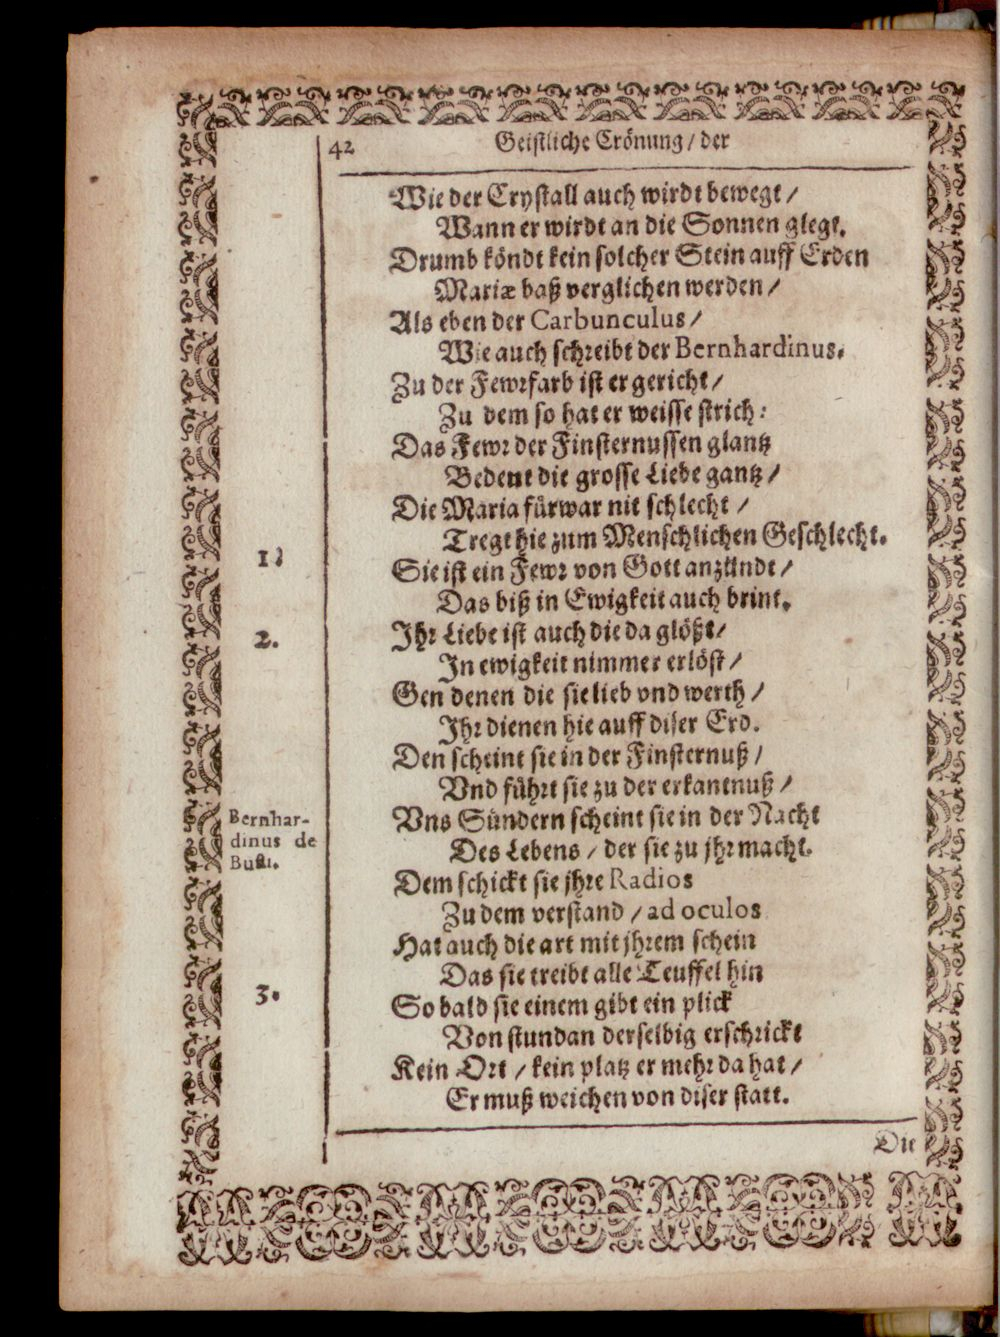 42
Geistliche Crönung / der
Wie der Crystall auch wirdt bewegt /
Wann er wirdt an die Sonnen glegt.
Drumb köndt kein solcher Stein auff Erden
Mariæ baß verglichen werden /
Als eben der Carbunculus /
Wie auch schreibt der Bernhardinus.
Zu der Fewrfarb ist er gericht /
Zu dem so hat er weisse strich:
Das Fewr der Finsternussen glantz
Bedeut die grosse Liebe gantz /
Die Maria fürwar nit schlecht /
Tregt hie zum Menschlichen Geschlecht.
1.
Sie ist ein Fewr von Gott anzündt /
Das biß in Ewigkeit auch brint.
2.
Ihr Liebe ist auch die da glößt /
In ewigkeit nimmer erlöst /
Gen denen die sie lieb vnd werth /
Ihr dienen hie auff diser Erd.
Den scheint sie in der Finsternuß /
Vnd führt sie zu der erkantnuß /
Bernhar-
dinus de
Busti.
Vns Sündern scheint sie in der Nacht
Des Lebens / der sie zu jhr macht.
Dem schickt sie jhre Radios
Zu dem verstand / ad oculos
Hat auch die art mit jhrem schein
Das sie treibt alle Teuffel hin
3.
So bald sie einem gibt ein plick
Von stundan derselbig erschrickt
Kein Ort / kein platz er mehr da hat /
Er muß weichen von diser statt.
Die